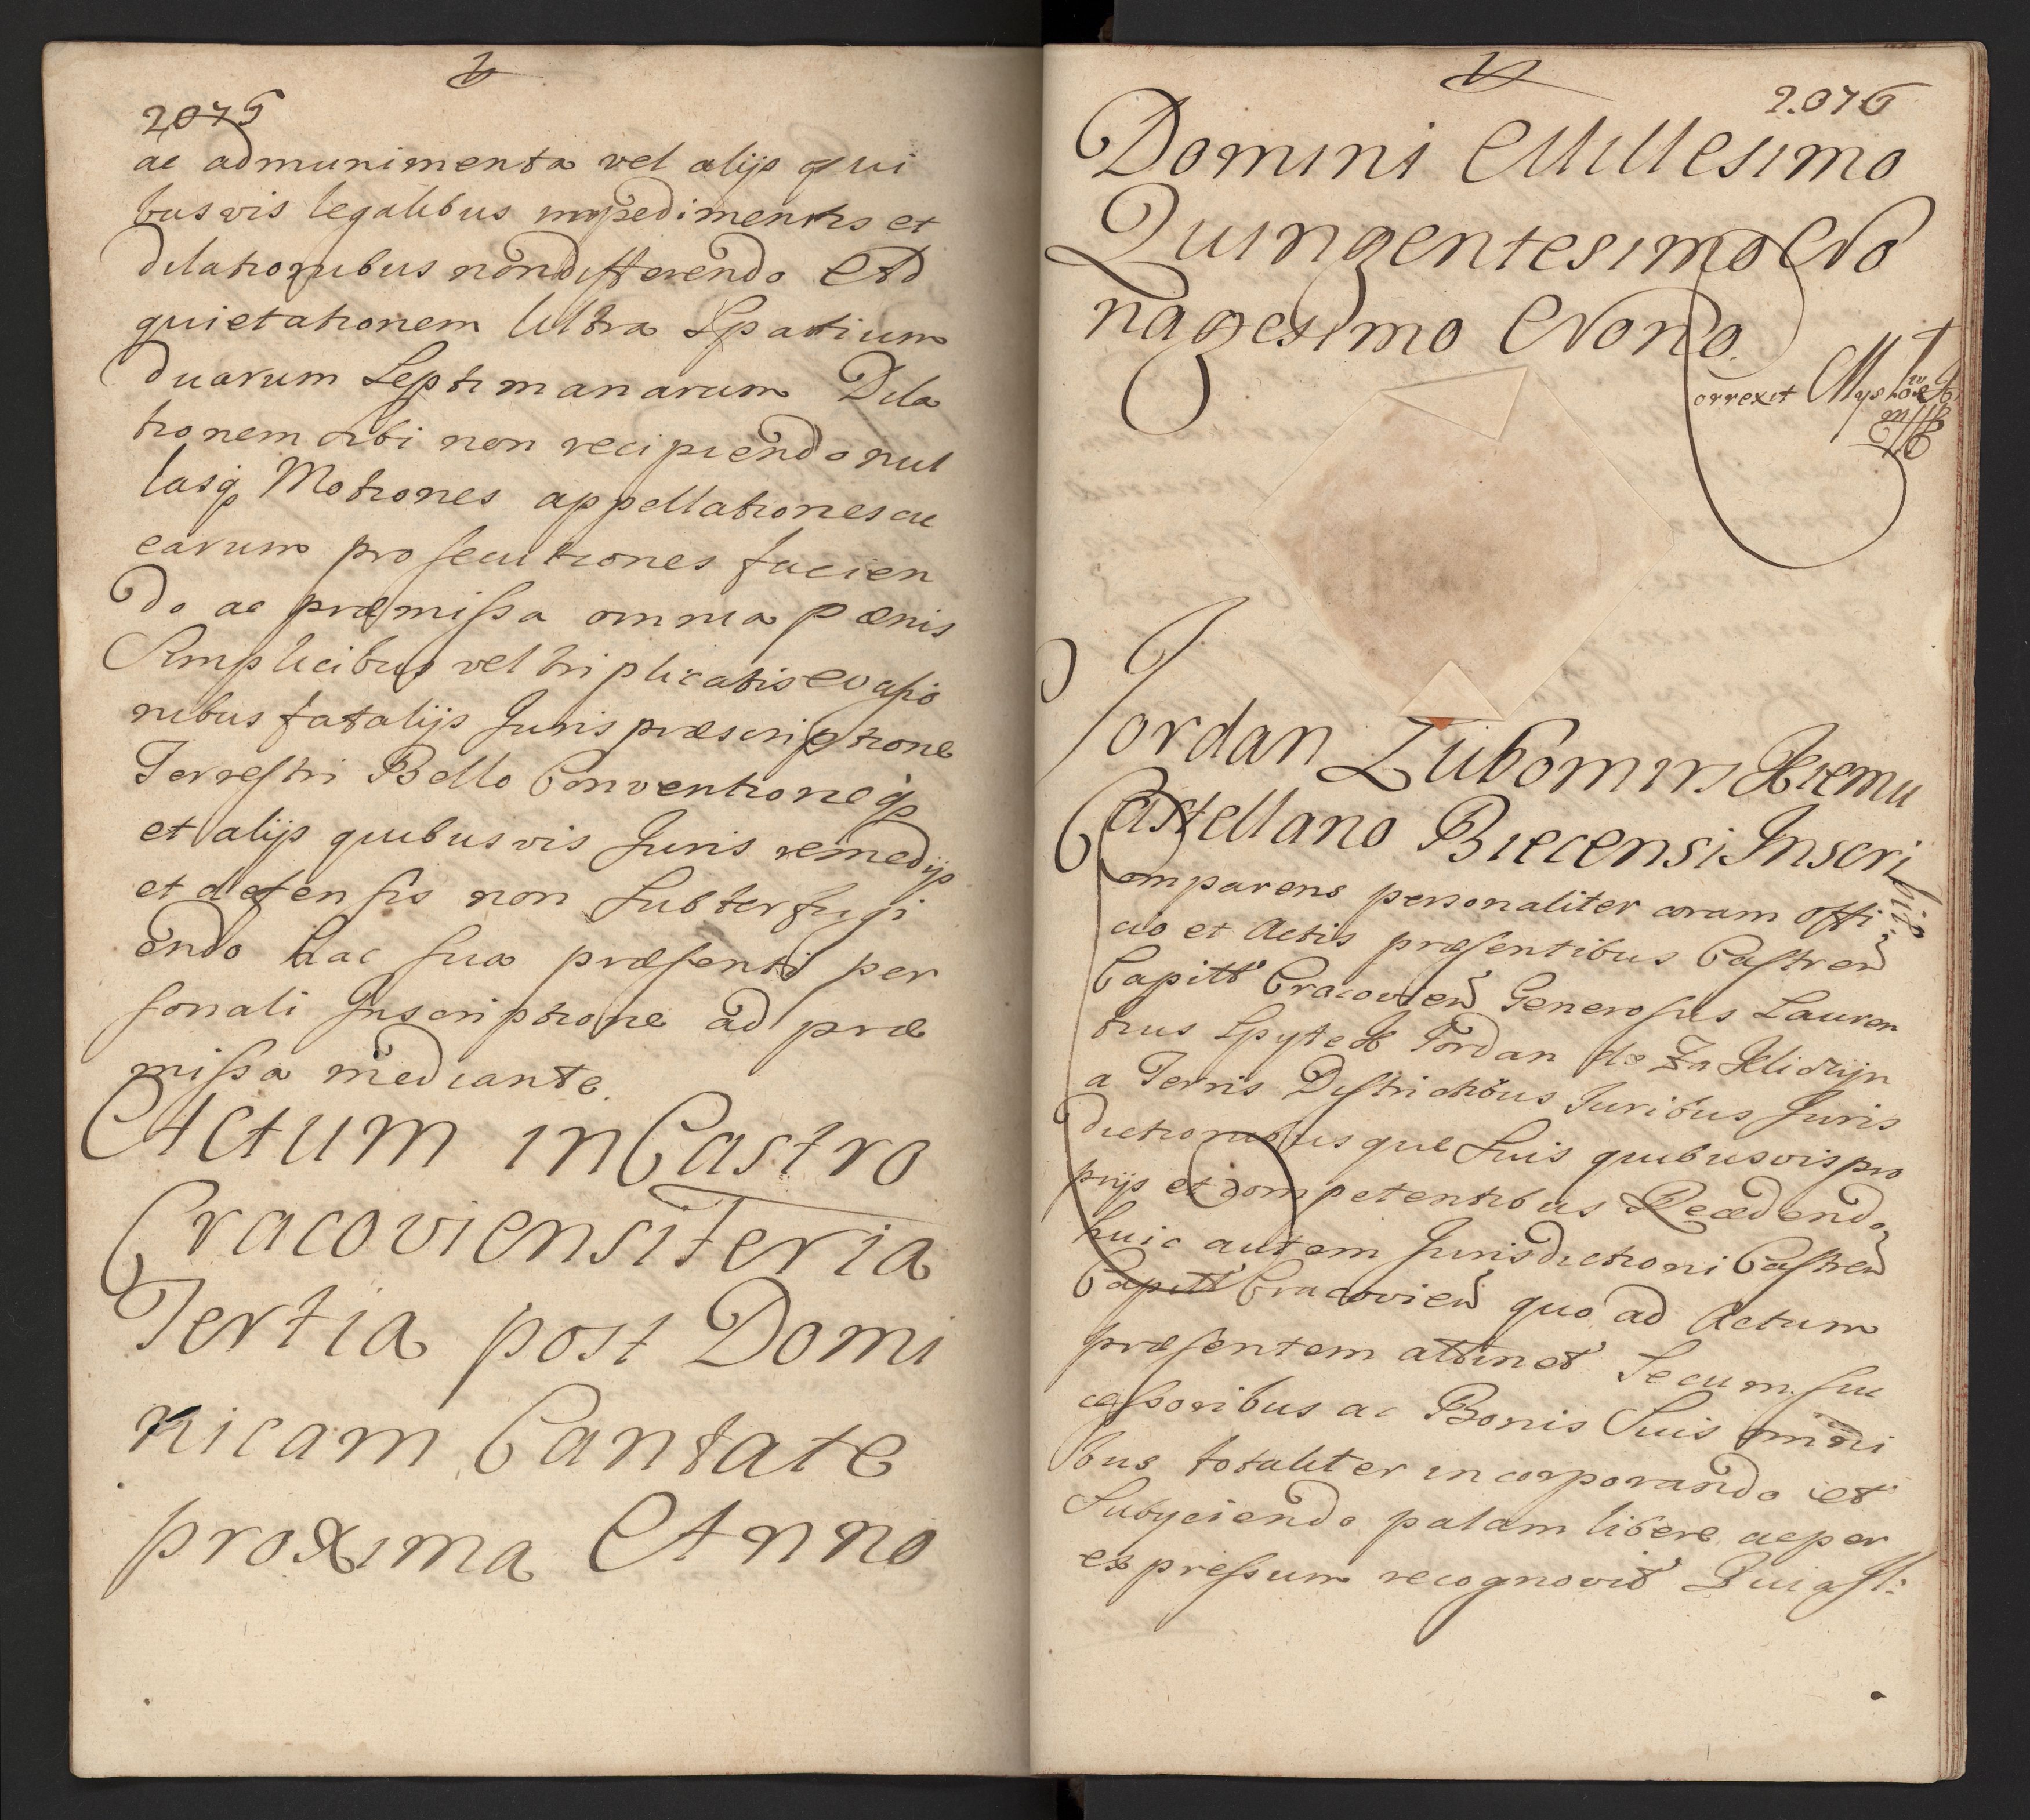 2075
ac admunimenta vel alijs qui
busvis legalibus impedimentis et
dilationibus non differendo Ad
quietationem Ultra Spatium
duarum Septimanarum Dila
tionem sibi non recipiendo nul
lasq₃ Motiones appellationes ac
earum prosecutiones facien
do ac præmissa omnia pænis
Simplicibus vel triplicatis evasio
nibus fatalijs Juris præscriptione
Terrestri Bello Conventioneq₃
et alijs quibusvis Juris remedijs
et defensis non Subterfugi
endo hac sua præsenti per
sonali Inscriptione ad præ
missa mediante.
Actum in Castro
Cracoviensi Feria
Tertia post Domi
nicam Cantate
proxima Anno
2.076
Domini Millesimo
Quingentesimo No
nagesimo Nono.
Correxit
Jordan Lubomirskiemu
Castellano Biecensi Inscri
bit
Comparens personaliter coram offi:
cio et Actis præsentibus Castren̄
Capitt' Cracovien̄ Generosus Lauren
tius Spytek Jordan de Zaklidzyn
a Terris Districtibus Juribus Juris
dictionibusque Suis quibusvis pro
prijs et competentibus Recedendo
huic autem Jurisdictioni Castren̄
Capitt' Cracovien̄ quo ad Actum
præsentem attinet Se cum suc
cessoribus ac Bonis Suis omni
bus totaliter incorporando et
Subyciendo palam libere ac per
expressum recognovit Quia si: